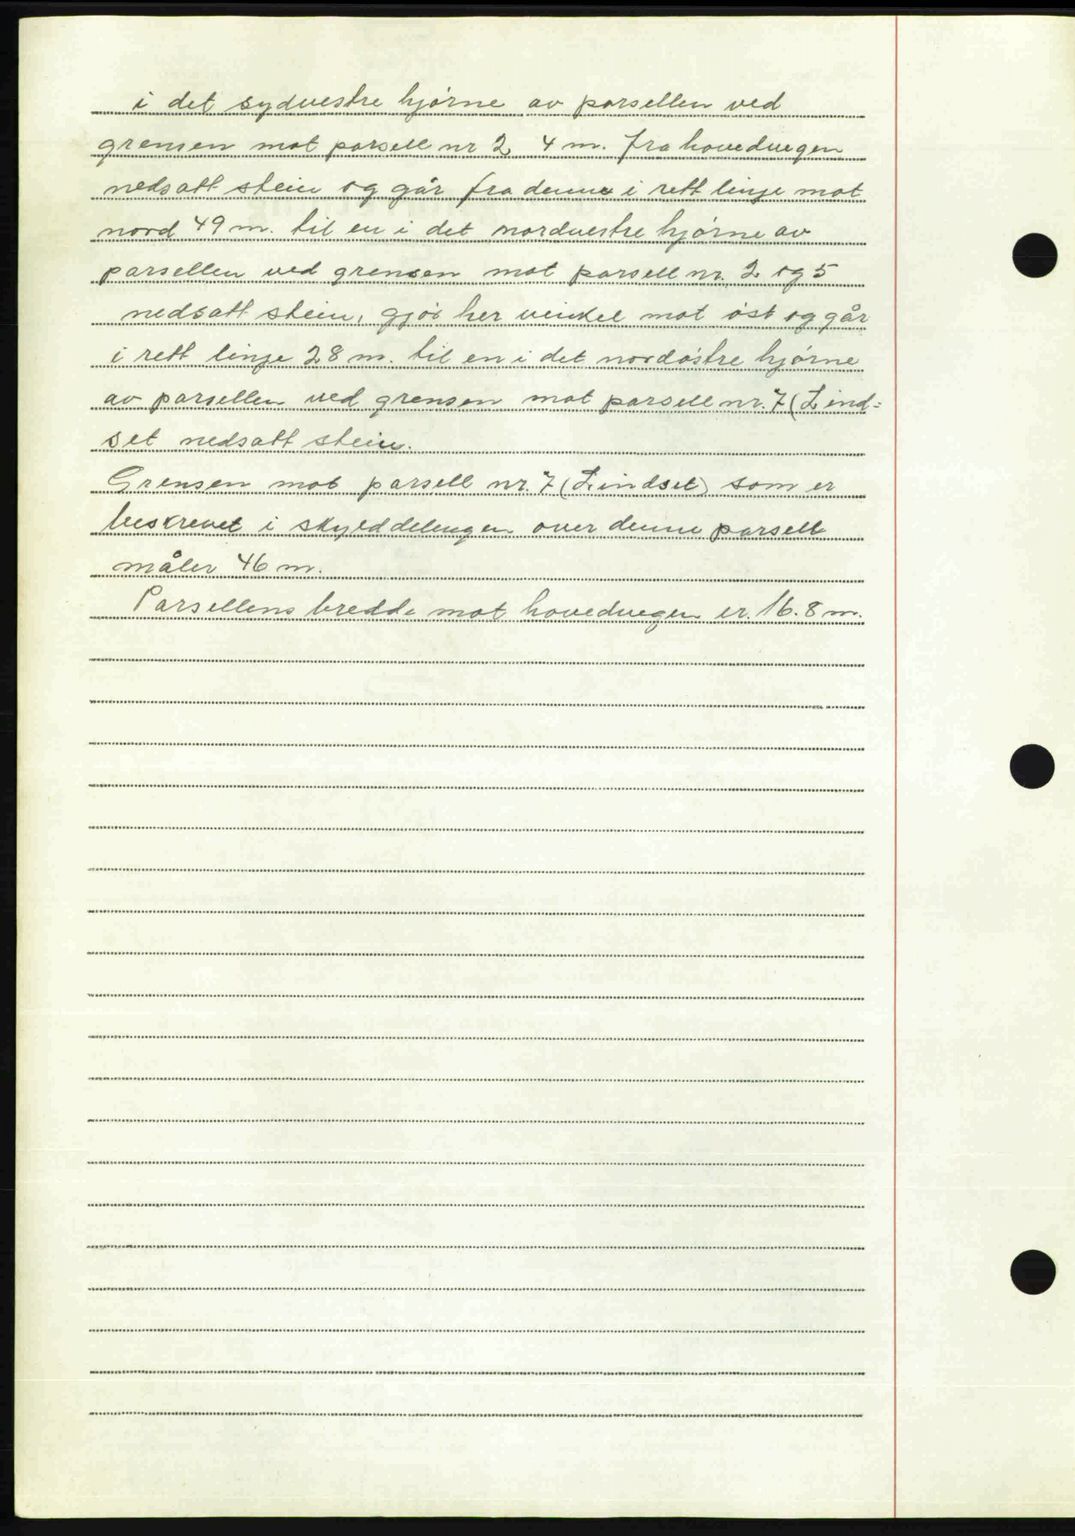 i det sydvestre hjørne av parsellen ved
grensen mot parsell nr 2 4 m. fra hovedvegen
nedsatt stein og går fra denne i rett linje mot
nord 49 m. til en i det nordvestre hjørne av
parsellen ved grensen mot parsell nr. 2 og 5
nedsatt stein, gjør her vinkel mot øst og går
i rett linje 28 m. til en i det nordøstre hjørne
av parsellen ved grensen mot parsell nr. 7 (Lind=
set nedsatt stein.
Grensen mot parsell nr. 7 (Lindset) som er
beskrevet i skylddelingen over denne parsell
måler 46 m.
Parsellens bredde mot hovedvegen er. 16.8 m.